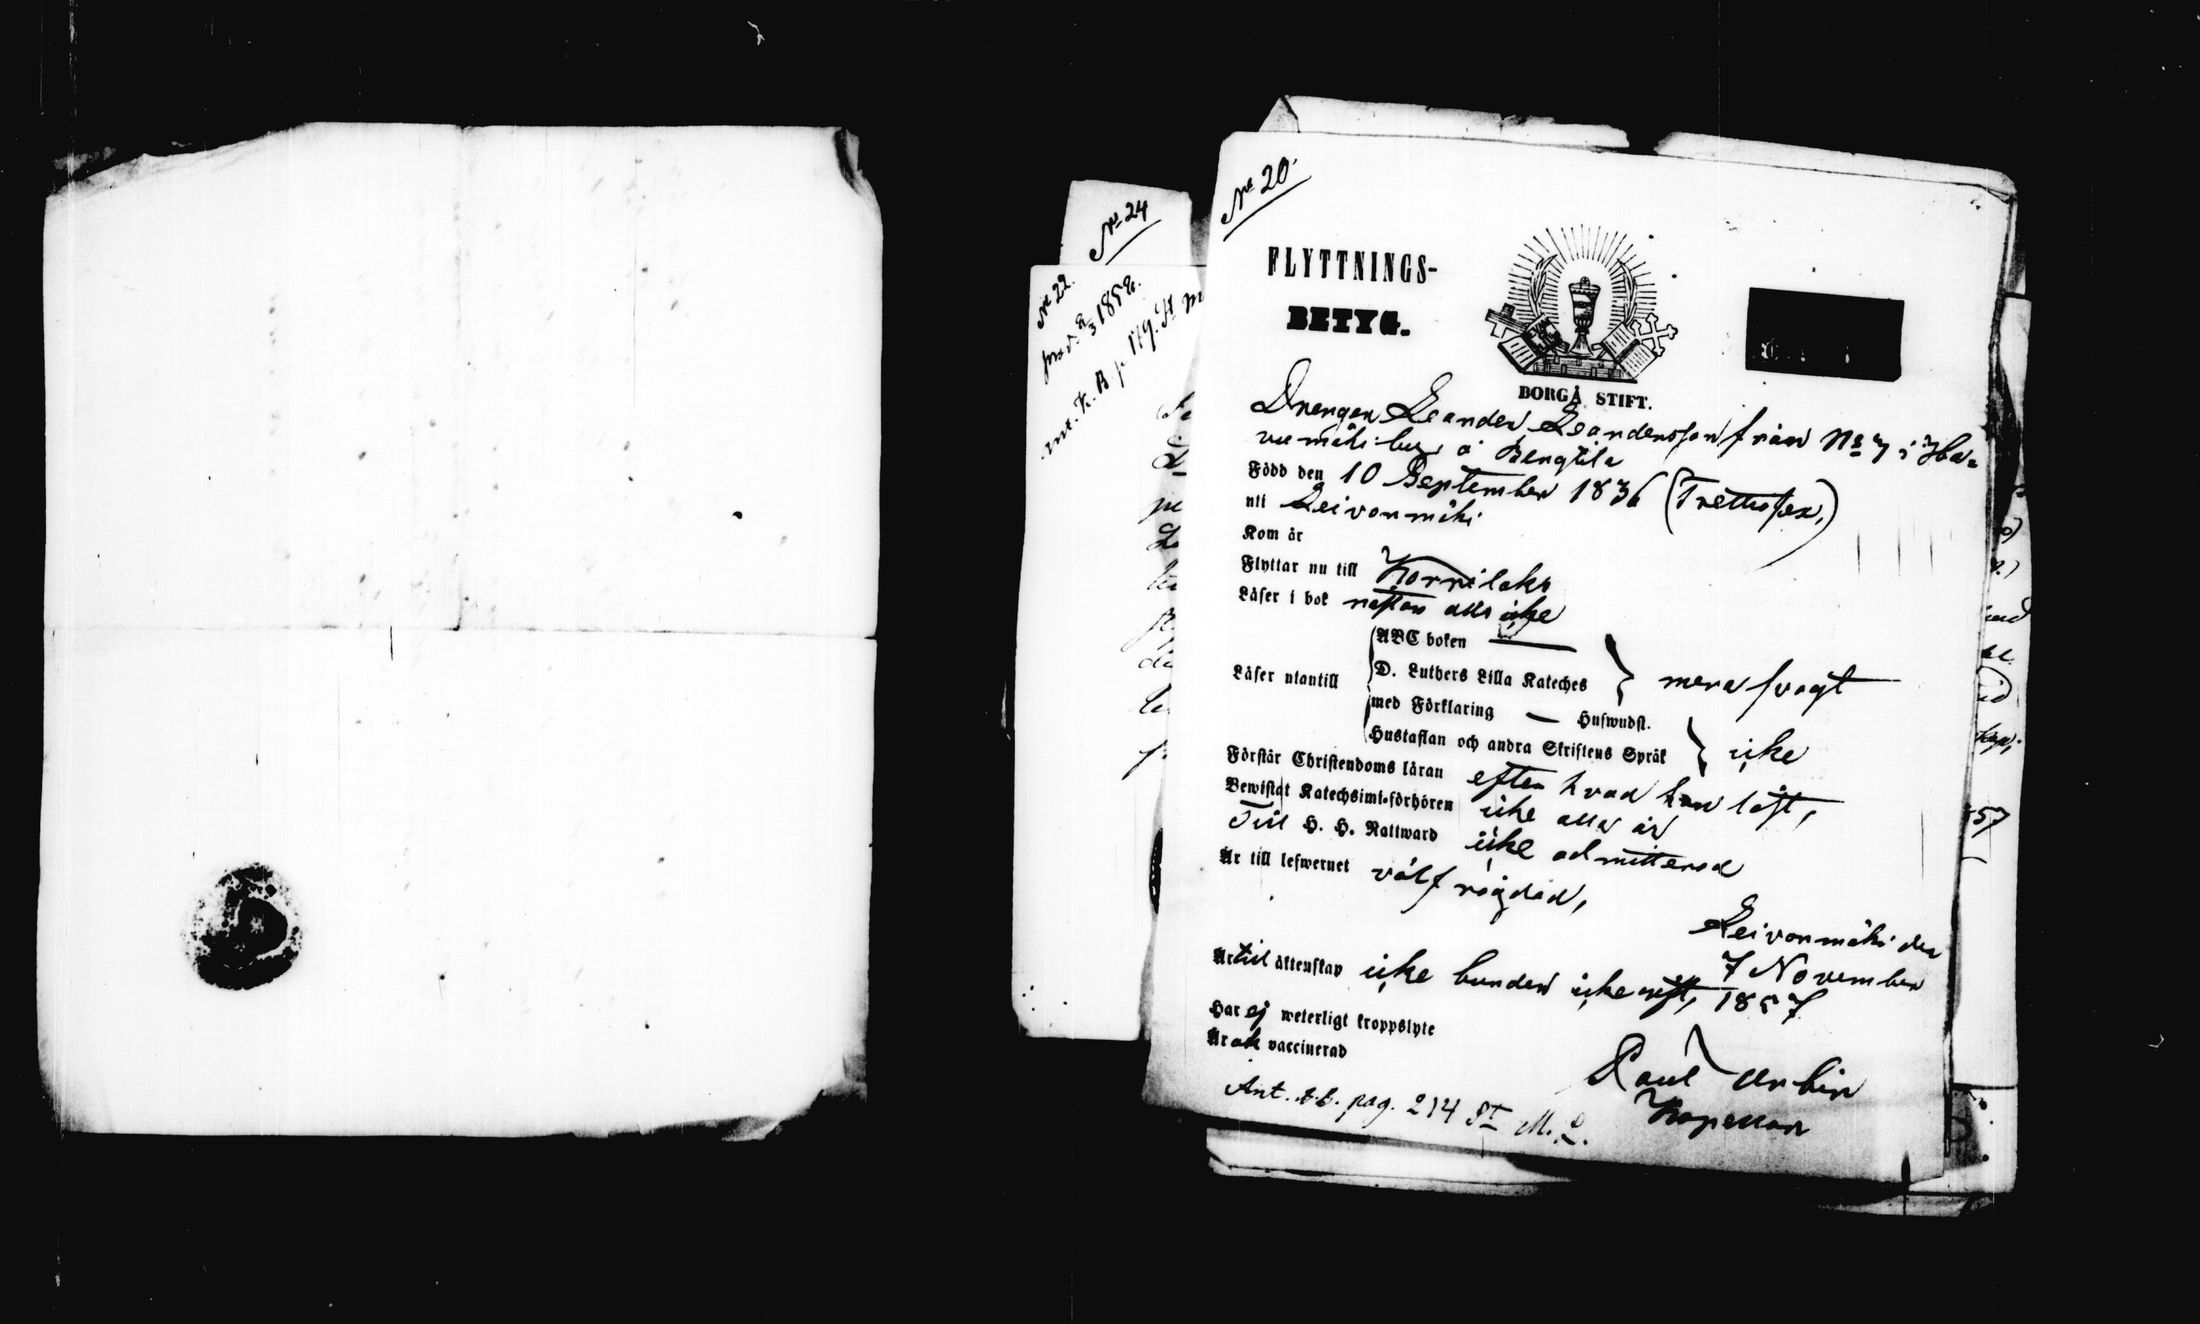 № 24
№ 22.
prod. 2/3 1858.
Ant. K. B p 119. St M
№ 20.
FLYTTNINGS-
BETYG.
BORGÅ STIFT.
Drengen Leander Leandersson från № 7 i Hba-
vumäki by, å Bengtila
Född den 10 September 1836 (Trettiosex,)
uti Leivonmäki
Kom år
Flyttar nu till Korpilaks
Läser i bok nästan alls icke
Läser utantill
ABC boken —
D. Luthers Lilla Kateches
mera svagt
med Förklaring — Huswudst.
Hustaflan och andra Skriftens Språk
icke
Förstår Christendoms läran efter hvad han läst,
Bewistat Katechsimi-förhören icke alla år
Till H. H. Nattward icke admitterad
Är till lefwernet välfrägdad,
Leivonmäki den
7 November
1857
Är till äktenskap icke bunden icke ens,
Har ej weterligt kroppslyte
Är ok vaccinerad
Paul Urbin
Kapellan
Ant. K.B. pag. 214 St M. L.
57